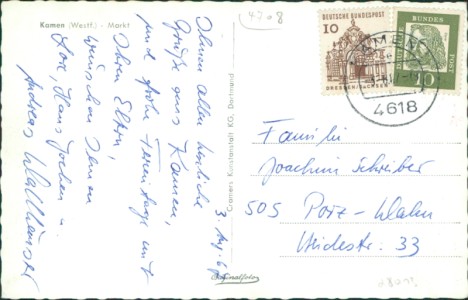 Kamen (Westf.) - Markt
4708
3. Aug. 67
Ihnen allen herzliche
Grüße aus Kamen,
und frohe Ferientage mit
Ihren Eltern,
wünschen Ihnen
Hans Jochen u.
Andreas
Cramers Kunstanstalt KG, Dortmund
DEUTSCHE BUNDESPOST
10
DRESDEN/SACHSEN
DEUTSCHE
BUNDES
POST
10
KAMEN
4618
Familie
Joachim Schreiber
505 Porz-Wahn
Heidestr. 33